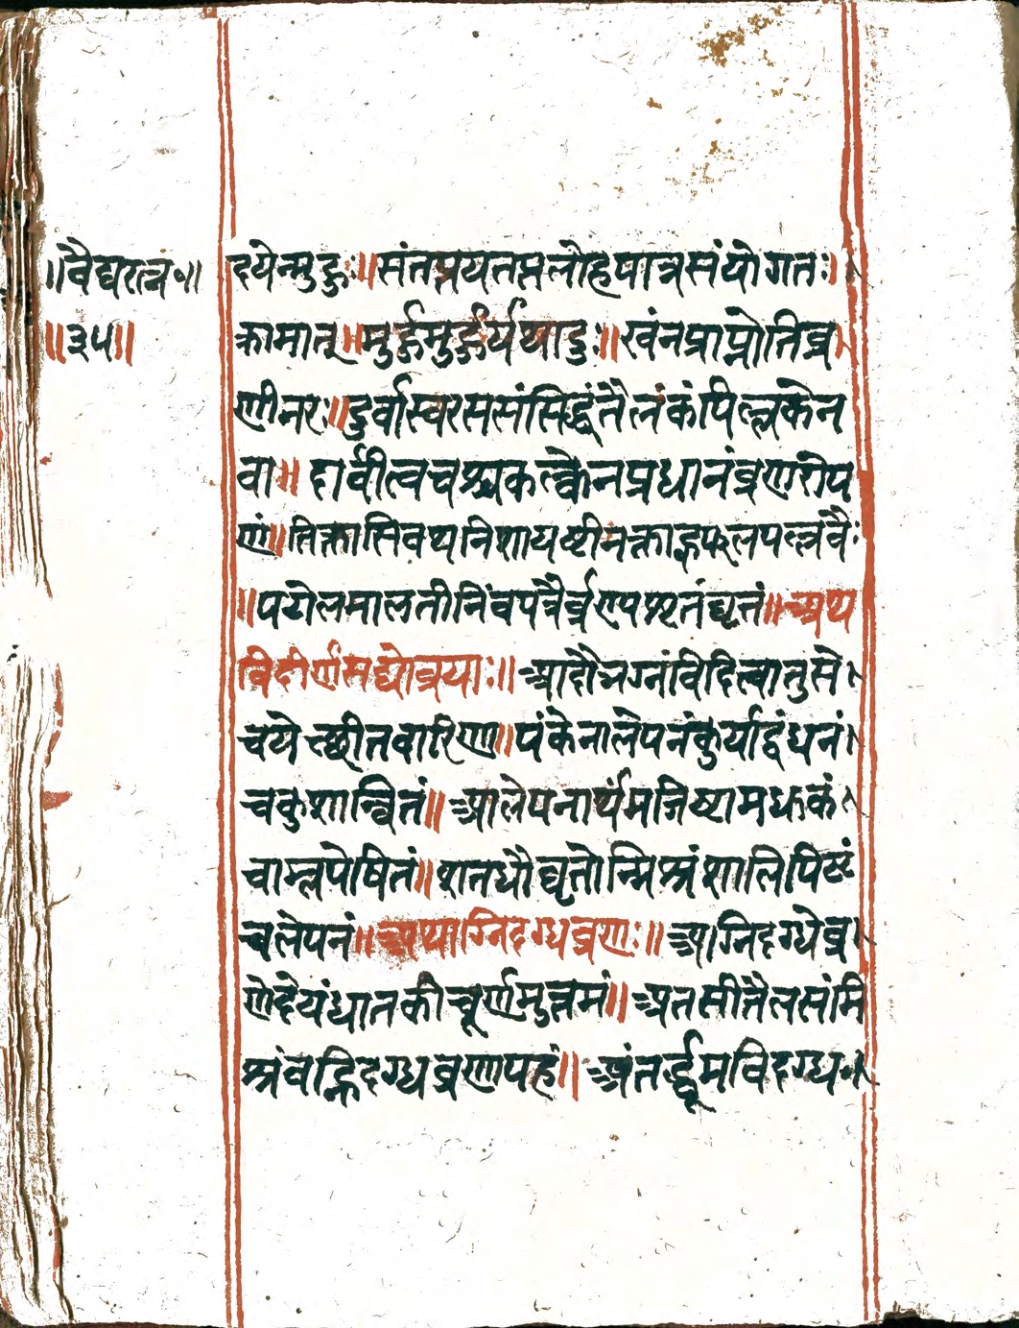 ॥वैद्यरत्न॰॥
॥३५॥
दयेन्मुहुः॥संतप्तयतप्तलोहपात्रसंयोगतः॥
क्रामात्॥मुर्द्धमुर्द्धर्यथादुः॥खंनप्राप्नोतिव्र
णीनरः॥दुर्वास्वरससंसिद्धंतैलंकंपिल्लकेन
वा॥दार्वीत्वचश्चकल्केनप्रधानंव्रणरोप
णं॥तिक्तासिवथनिशायष्टीनक्ताह्वफलपल्लवैः
॥पटोलमालतीनिंबपत्रैर्व्रण्पश्रृतंघृतं॥अथ
विदीर्णसद्योव्रयाः॥आदौभग्नंविदित्वातुसे
चयेच्छीतवारिणा॥पंकेनालेपनंकुर्याद्बंधनं
चकुशान्वितं॥आलेपनार्थंमजिष्टामधुकं
चाम्लपेषितं॥शतधौघृतोन्मिश्रंशालिपिष्टं
चलेपनं॥अथाग्निदग्धव्रणः॥अग्निदग्धेव्र
णेदेयंधातकीचूर्णमुत्तमं॥अतसीतैलसंमि
श्रंवह्निदग्धव्रणापहं॥अंतर्द्धूमविदग्ध॰